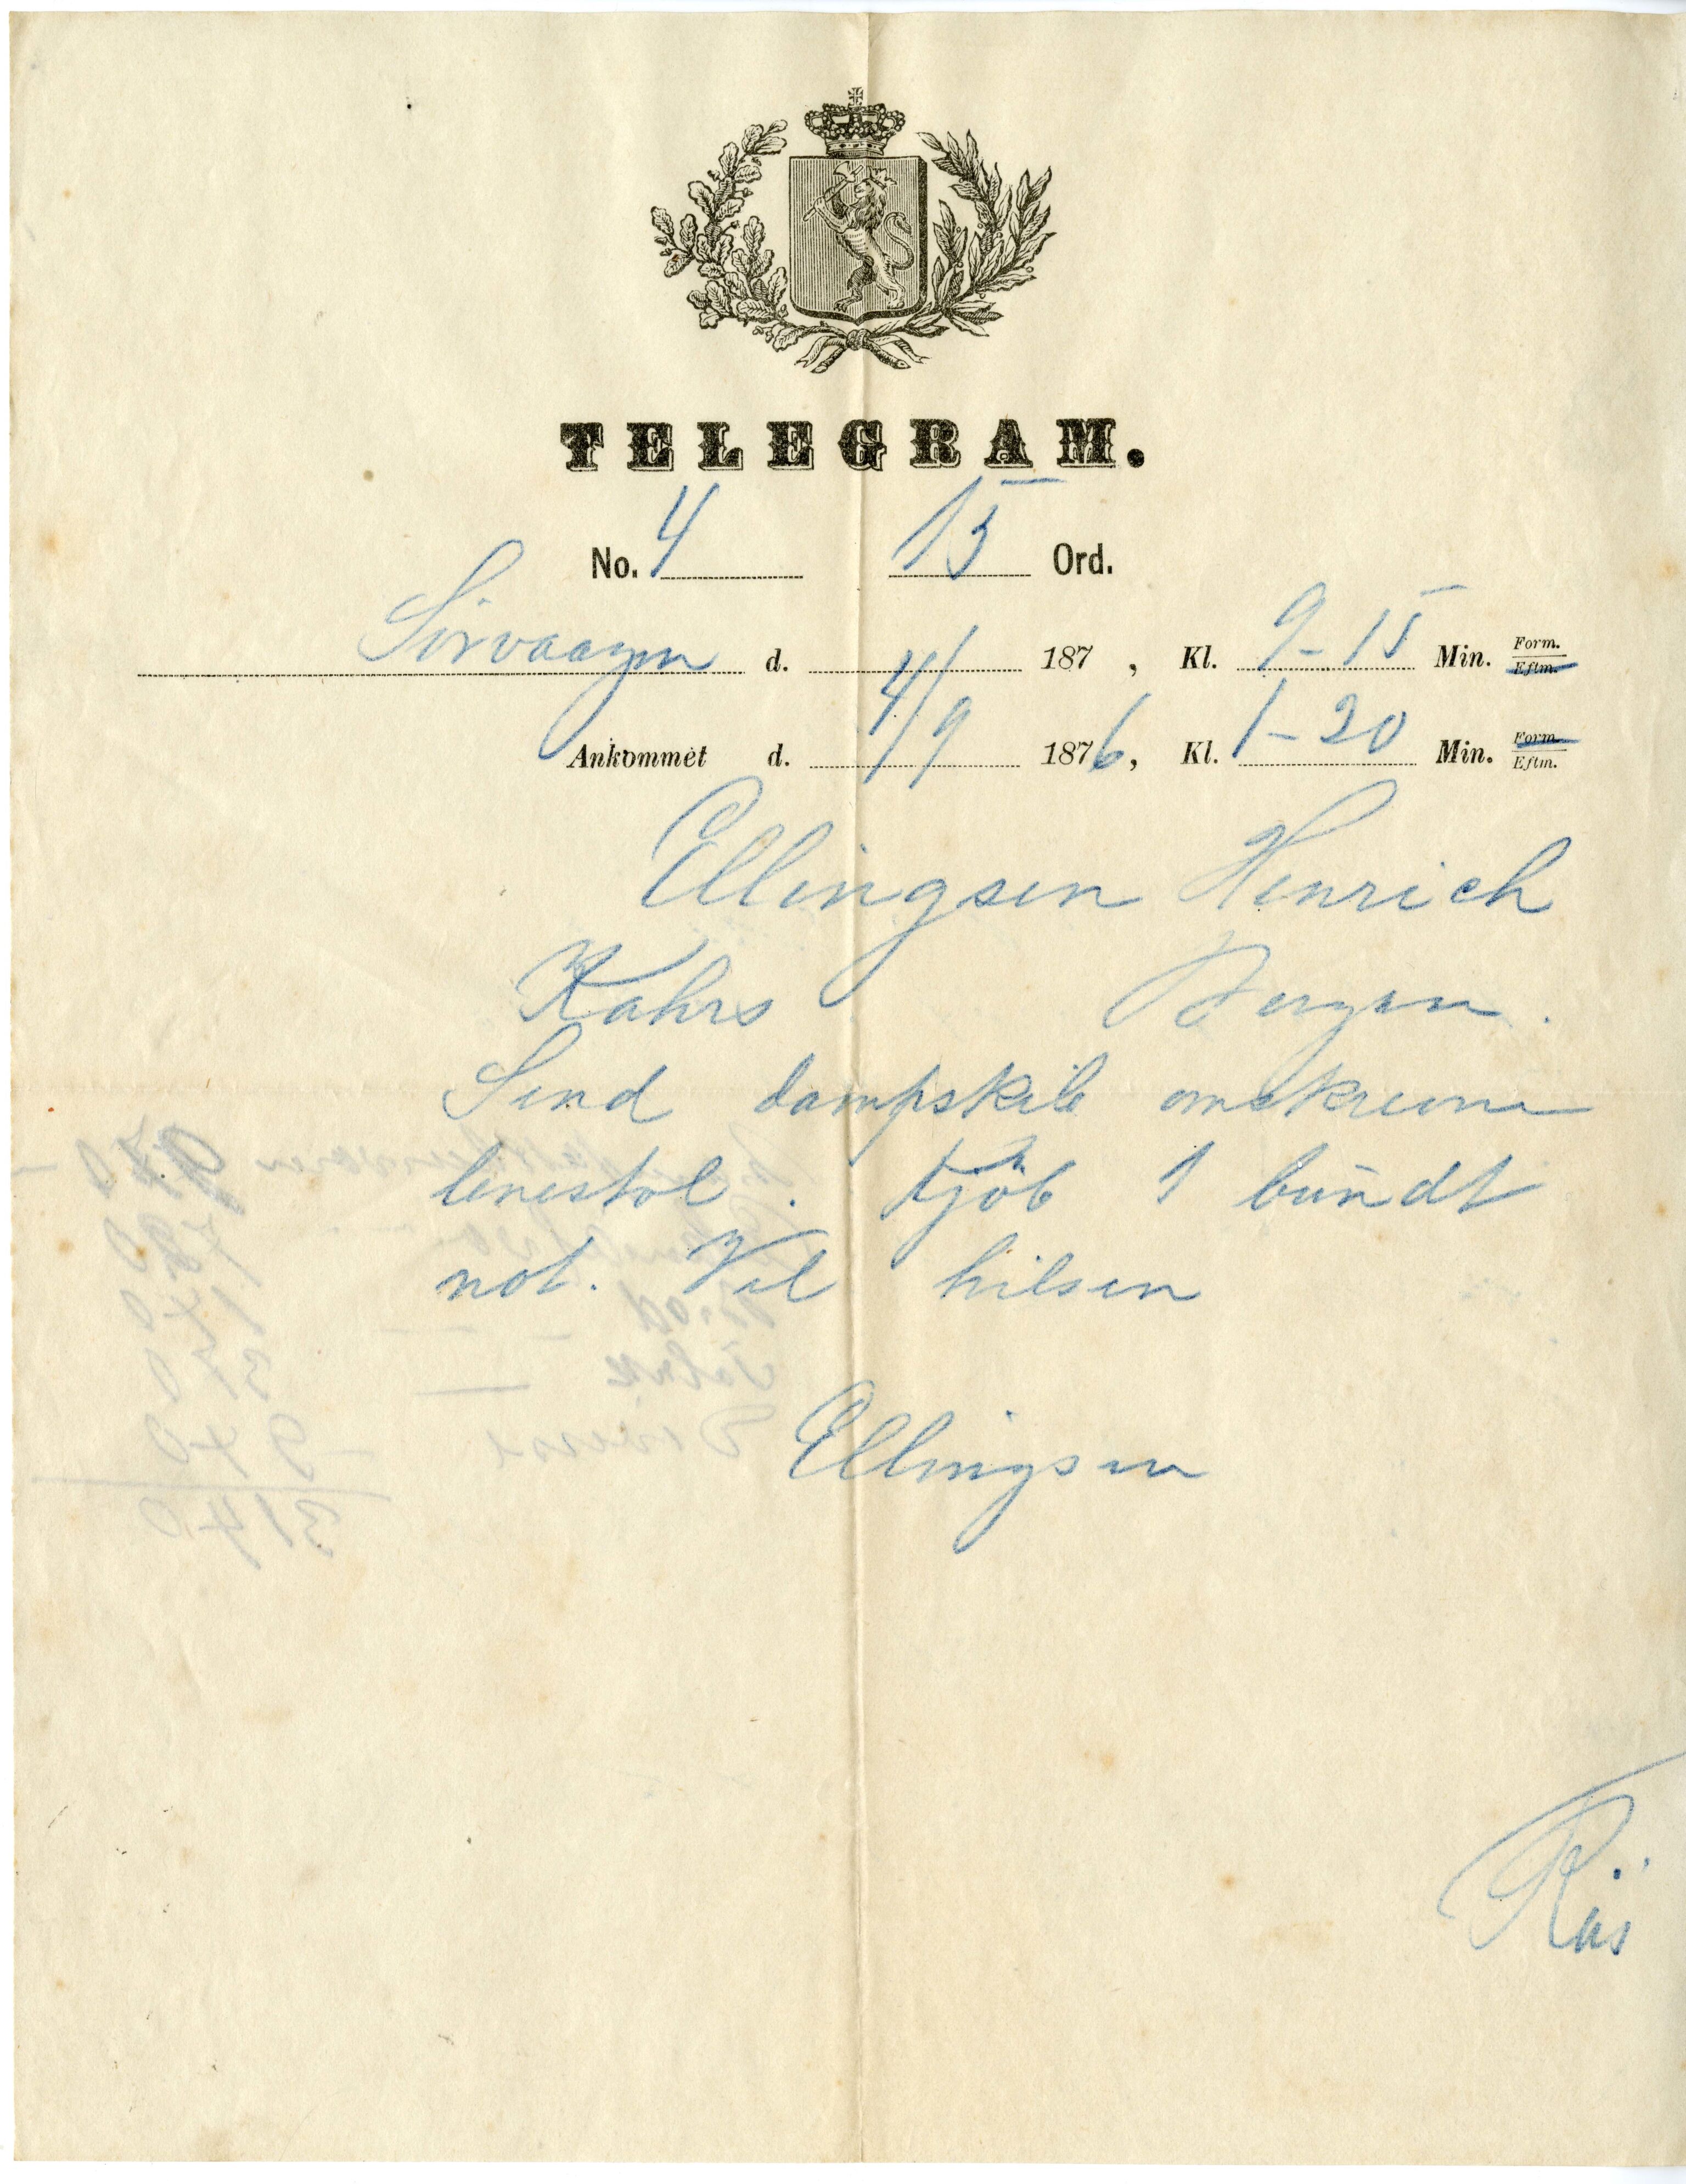 TELEGRAM.
No. 4 15 Ord.
Sörvaagen d. 4/9 187 , Kl. 9-15 Min. Form. Eftm.
Ankommet d. 1876, Kl. 1-20 Min. Form. Eftm.
Ellingsen Henrich
Kahrs Bergen.
Send dampskib omskrevne
lenestol. Kjöb 1 bundt
not. Vel hilsen
Ellingsen